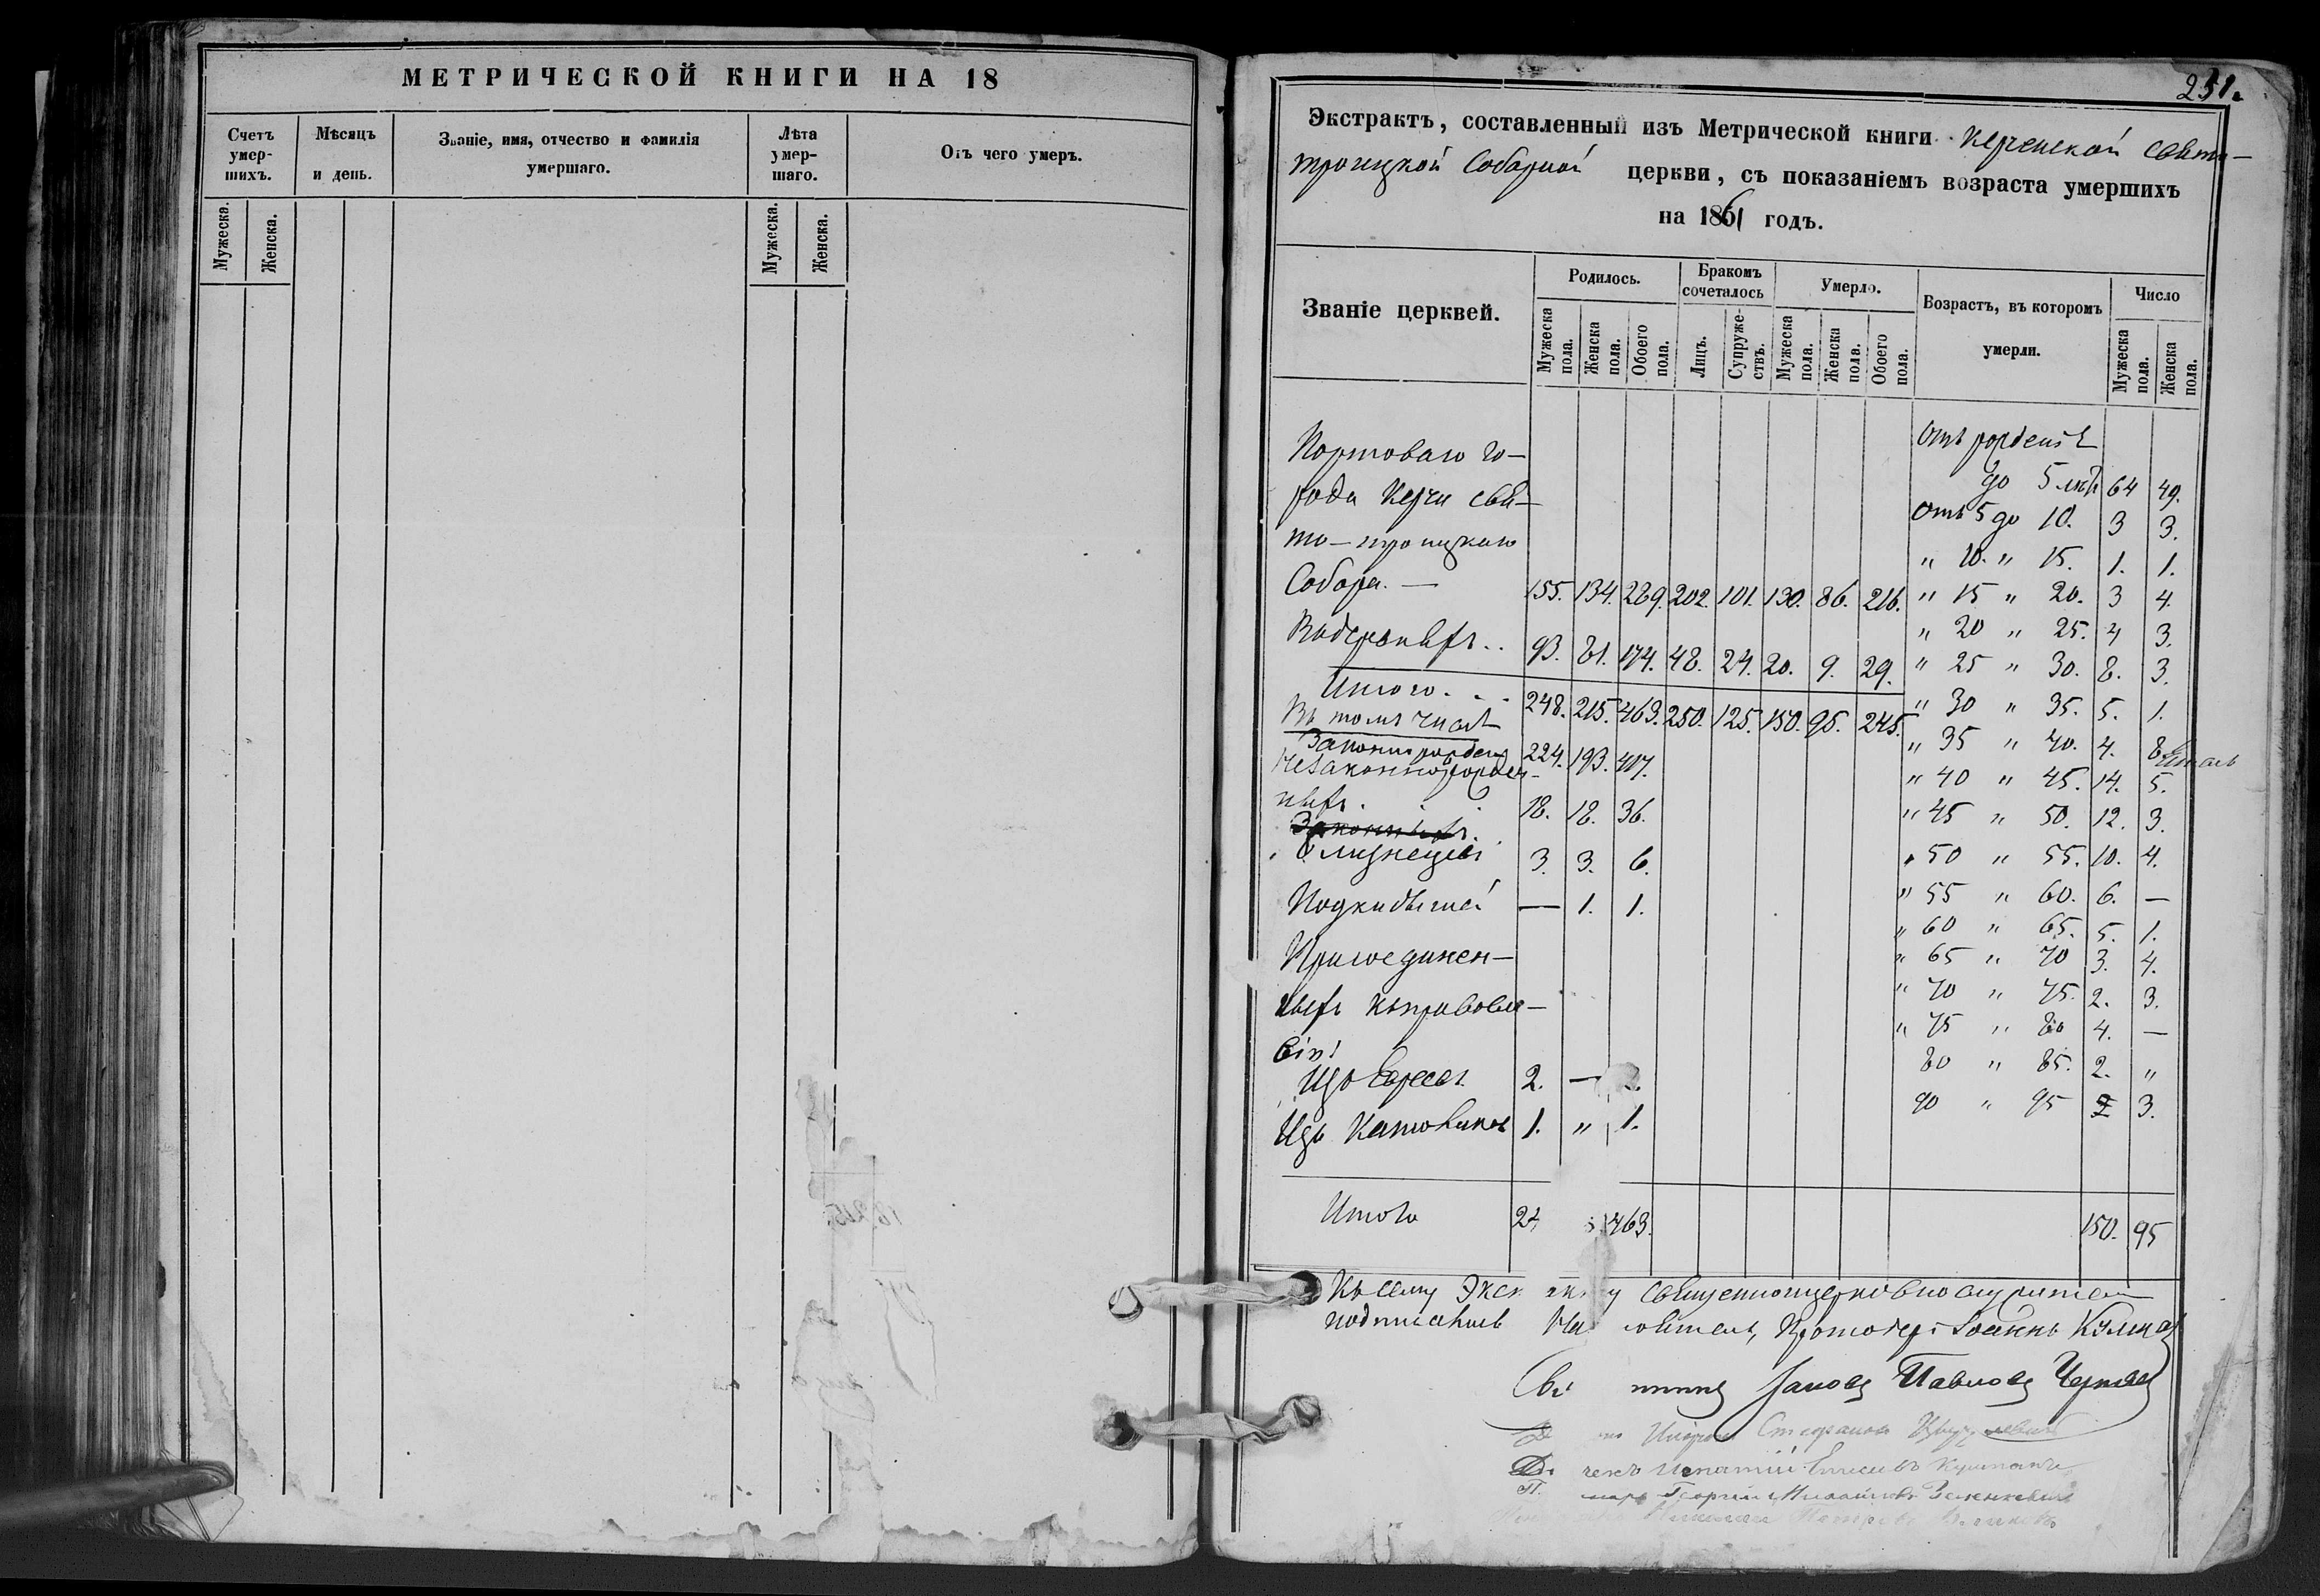 МЕТРИЧЕСКОЙ КНИГИ НА 18
Счетъ умер-шихъ.
Мѣсяцъ и день.
Званіе, имя, отчество и фамилія умершаго.
Лѣта умер-шаго.
Отъ чего умеръ.
Мужеска. Женска. Мужеска. Женска.
231.
Экстрактъ, составленный изъ Метрической книги Керченской Свято-
троицкой Соборной церкви, съ показаніемъ возраста умершихъ
на 1861 годъ.
Званіе церквей.
Родилось.
Бракомъ сочеталось
Умерло.
Возрастъ, въ которомъ умерли.
Число
Мужеска пола. Женска пола. Обоего пола. Лицъ. Супруже-ствъ. Мужеска пола. Женска пола. Обоего пола. Мужеска пола. Женска пола.
Портоваго го-
рода Керчи Свя-
то-троицкаго
Собора. — 155. 134. 289. 202. 101. 130. 86. 216.
93. 81. 174. 48. 24. 20. 9. 29.
Итого . . . 248. 215. 463. 250. 125. 150. 95. 245.
Въ томъ числѣ
224. 193. 417.
Незаконнорожден-
ныхъ . 18. 18. 36.
Близнецы 3. 3. 6.
— 1. 1.
Присоединен-
ныхъ къ правосла-
вію
2. —
Изъ Католиковъ 1. " 1.
Итого 24 463.
Отъ рожденія
до 5 лѣт 64 49.
Отъ 5 до 10. 3 3.
" 10. " 15. 1. 1.
" 15 " 20. 3 4.
" 20 " 25. 4 3.
" 25 " 30. 8. 3.
" 30 " 35. 5. 1.
" 35 " 40. 4. 8
" 40 " 45. 14. 5.
" 45 " 50. 12. 3.
" 50 " 55. 10. 4.
" 55 " 60. 6. —
" 60 " 65. 5. 1.
" 65 " 70 3. 4.
" 70 " 75. 2. 3.
" 75 " 80 4. —
80 " 85. 2. "
90 " 95 2 3.
150. 95
Къ сему священноцерковнослужители
Іоаннъ
Іаковъ Павловъ
Стефановъ
Игнатій
Георгій
Николай